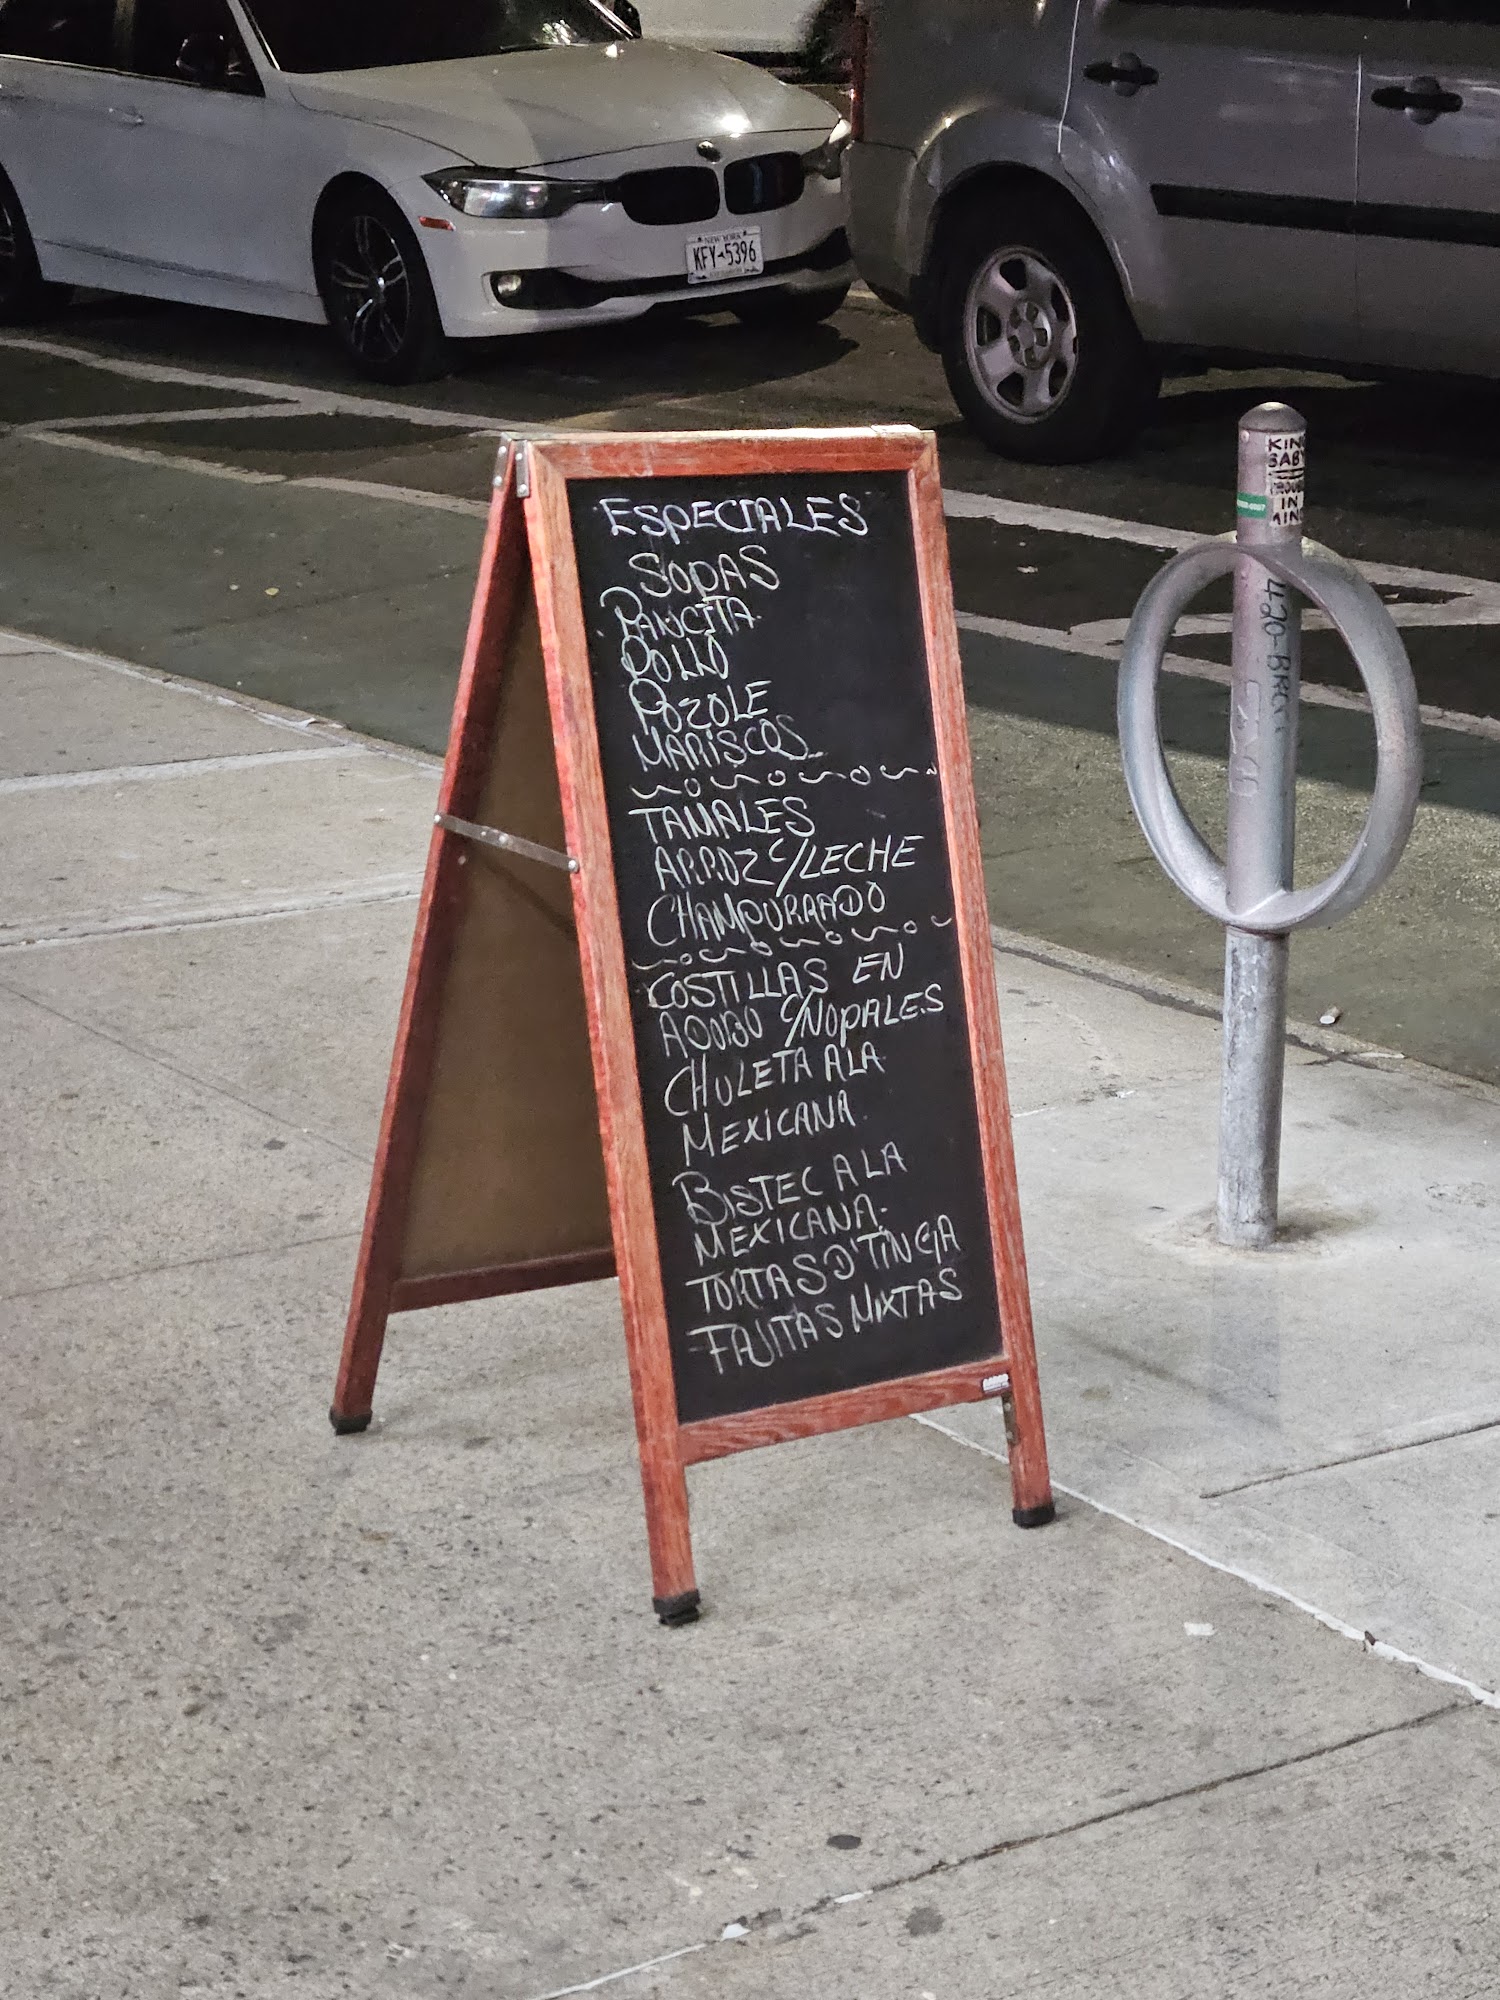 NEW YORK
KFY-5396
KIN
BABY
IN
420-BRO
ESPECIALES
SOPAS
PANCITA.
POLLO
POZOLE
MARISCOS
TAMALES
ARROZ C/LECHE
CHAMPURRADO
COSTILLAS EN
ADOBO C/NOPALES
CHULETA ALA
MEXICANA.
BISTEC A LA
MEXICANA.
TORTAS D'TINGA
FAJITAS MIXTAS